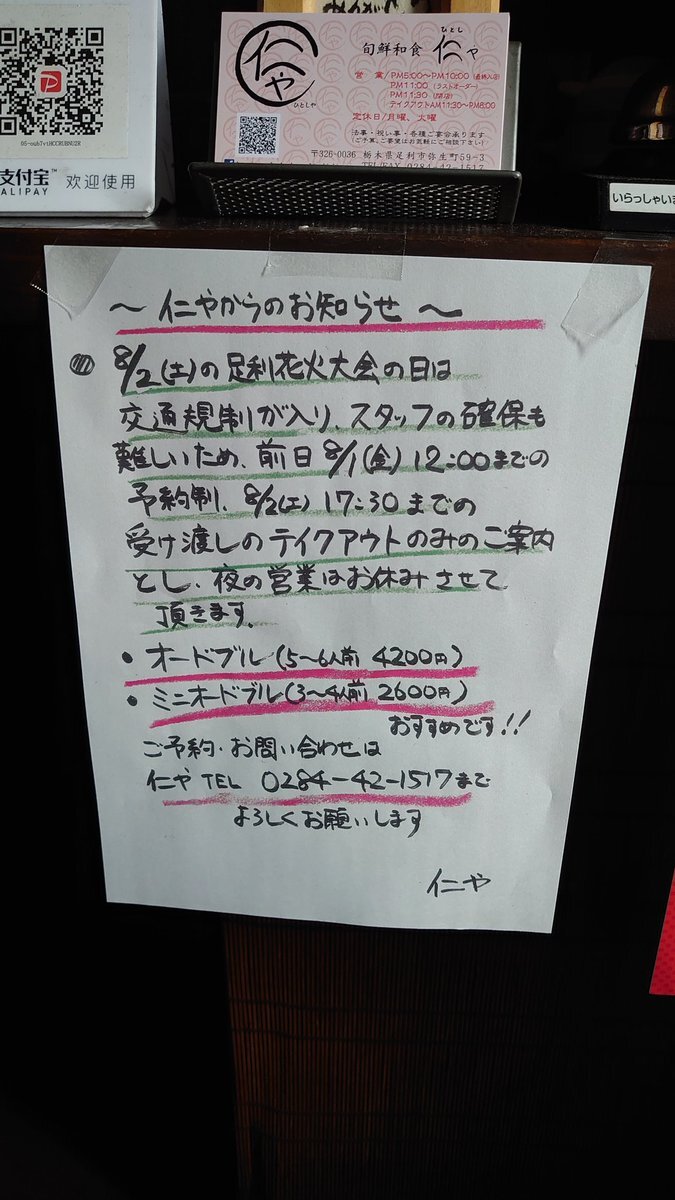 05-oubTviHCCRUBNU2R
支付宝™ 欢迎使用
ALIPAY
仁や
ひとしや
ひとし
旬鮮和食 仁や
営 業/PM5:00〜PM10:00(最終入店)
PM11:00(ラストオーダー)
PM11:30(閉店)
テイクアウトAM11:30〜PM8:00
定休日/月曜、火曜
法事・祝い事・各種ご宴会承ります
(ご予算、ご要望はお気軽にご相談下さい)
〒326-0036 栃木県足利市弥生町59-3
TEL/FAX 0284-42-1517
いらっしゃいま
〜 仁やからのお知らせ 〜
8/2(土)の足利花火大会の日は
交通規制が入り、スタッフの確保も
難しいため、前日8/1(金)12:00までの
予約制、8/2(土)17:30までの
受け渡しのテイクアウトのみのご案内
とし、夜の営業はお休みさせて
頂きます。
・オードブル(5〜6人前 4200円)
・ミニオードブル(3〜4人前 2600円)
おすすめです!!
ご予約・お問い合わせは
仁や TEL 0284-42-1517まで
よろしくお願いします
仁や